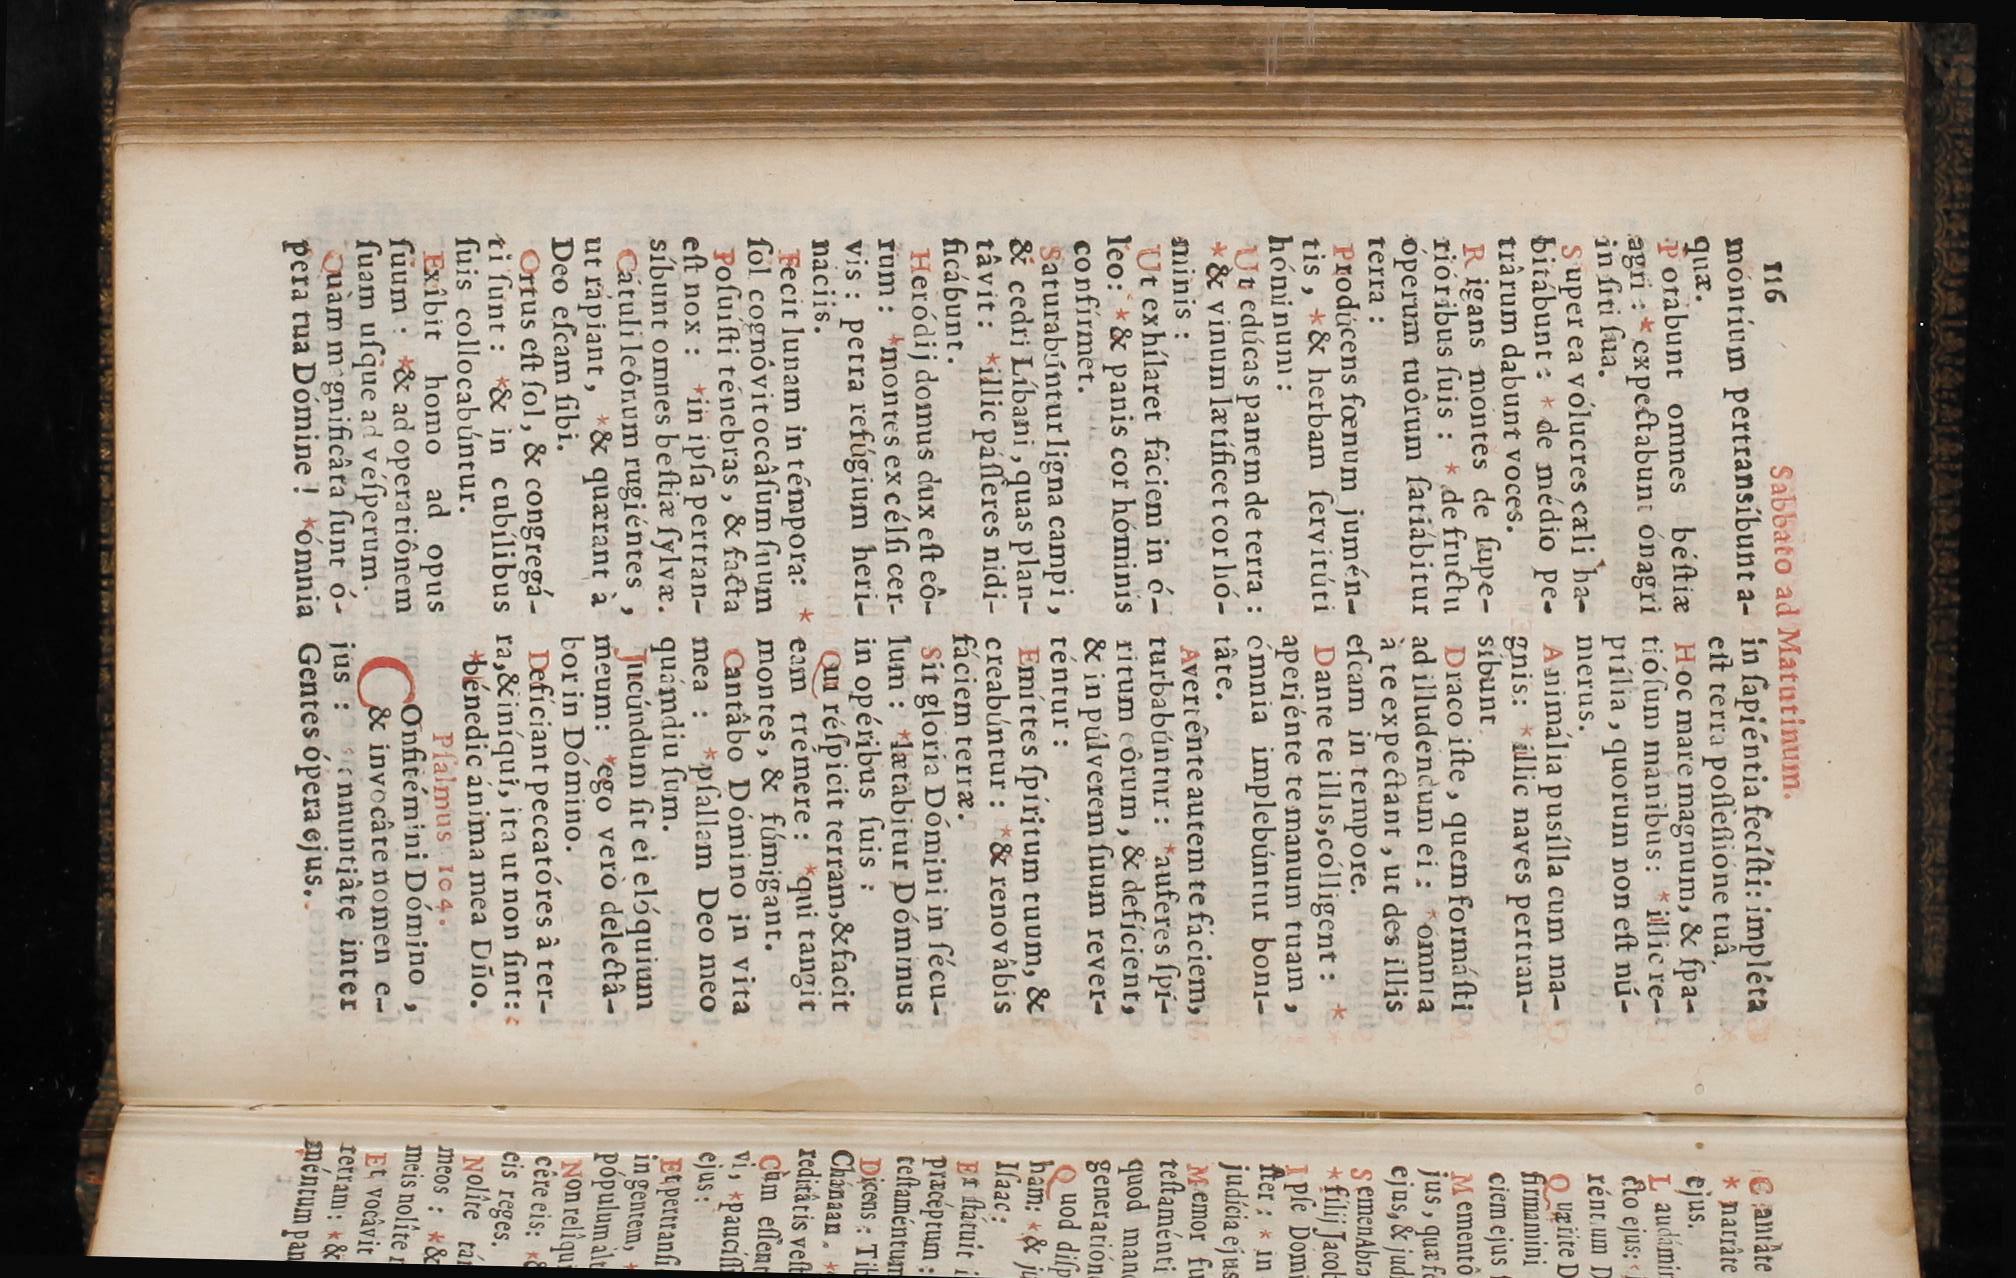 116
Sabbato ad Matutinum.
móntium pertransíbunt a-
quæ.
Potabunt omnes béſtiæ
agri: * expectabunt ónagri
in ſiti ſua.
Super ea vólucres cæli ha-
bitábunt: * de médio pe-
trârum dabunt voces.
Rigans montes de ſupe-
rióribus ſuis: * de fructu
óperum tuôrum ſatiábitur
terra:
Prodúcens fœnum jumén-
tis, * & herbam ſervitúti
hóminum:
Ut edúcas panem de terra:
* & vinum lætíficet cor hó-
minis:
Ut exhílaret fáciem in ó-
leo: * & panis cor hóminis
confírmet.
Saturabúntur ligna campi,
& cedri Líbani, quas plan-
tâvit: * illic páſſeres nidi-
ficábunt.
Heródij domus dux eſt eô-
rum: * montes excélſi cer-
vis: petra refúgium heri-
náciis.
Fecit lunam in témpora: *
ſol cognôvit occâſum ſuum
Poſuíſti ténebras, & facta
eſt nox: * in ipſa pertran-
síbunt omnes beſtiæ ſylvæ.
Cátuli leônum rugiéntes,
ut rápiant, * & quærant à
Deo eſcam ſibi.
Ortus eſt ſol, & congregá-
ti ſunt: * & in cubílibus
ſuis collocabúntur.
Exîbit homo ad opus
ſuum: * & ad operatiônem
ſuam uſque ad véſperum.
Quàm magnificâta ſunt ó-
pera tua Dómine! * ómnia
in ſapiéntia feciſti: impléta
eſt terra poſſeſſióne tuâ.
Hoc mare magnum, & ſpa-
tióſum manibus: * illic re-
ptília, quorum non eſt nú-
merus.
Animália puſílla cum ma-
gnis: * illic naves pertran-
síbunt
Draco iſte, quem formáſti
ad illudendum ei: * omnia
à te expectant, ut des illis
eſcam in tempore.
Dante te illis, cólligent: *
aperiénte te manum tuam,
ómnia implebúntur boni-
tâte.
Avertênte autem te fáciem,
turbabúntur: * auferes ſpí-
ritum eôrum, & defícient,
& in púlverem ſuum rever-
téntur:
Emíttes ſpíritum tuum, &
creabúntur: * & renovâbis
fáciem terræ.
Sit gloria Dómini in ſécu-
lum: * lætabitur Dóminus
in opéribus ſuis:
Qui réſpicit terram, & facit
eam tremere: * qui tangit
montes, & fúmigant.
Cantâbo Dómino in vita
mea: * pſallam Deo meo
quámdiu ſum.
Jucúndum ſit ei elóquium
meum: * ego verò delectâ-
bor in Dómino.
Defíciant peccatóres â ter-
ra, & iníqui, ita ut non ſint:
* bénedic ánima mea Dño.
Pſalmus 104.
COnfitémini Dómino,
& invocâte nomen e-
jus: annuntiâte inter
Gentes ópera ejus.
Cantâte
* narrâte
ejus.
Laudámin
cto ejus:
Quærite D
firmamini
ciem ejus
Mementô
jus, quæ fe
ejus, & jud
Semen Abra
* fílij Jacob
Ipſe Domi
ſter: * in
judícia ejus
Memor fu
teſtaménti
quod mand
generatión
Quod diſp
ham: * & ju
Iſaac:
Et ſtátuit i
præcéptum:
teſtaméntum
Dicens: Tib
Chánaan, *
reditâtis veſt
Cùm eſſent
vi, * pauciſſi
ejus:
Et pertranſi
in gentem, *
pópulum alt
Non relíqui
cére eis: * &
eis reges.
Nolíte tán
meos: * &
meis nolíte
Et vocâvit
terram: * &
méntum pan